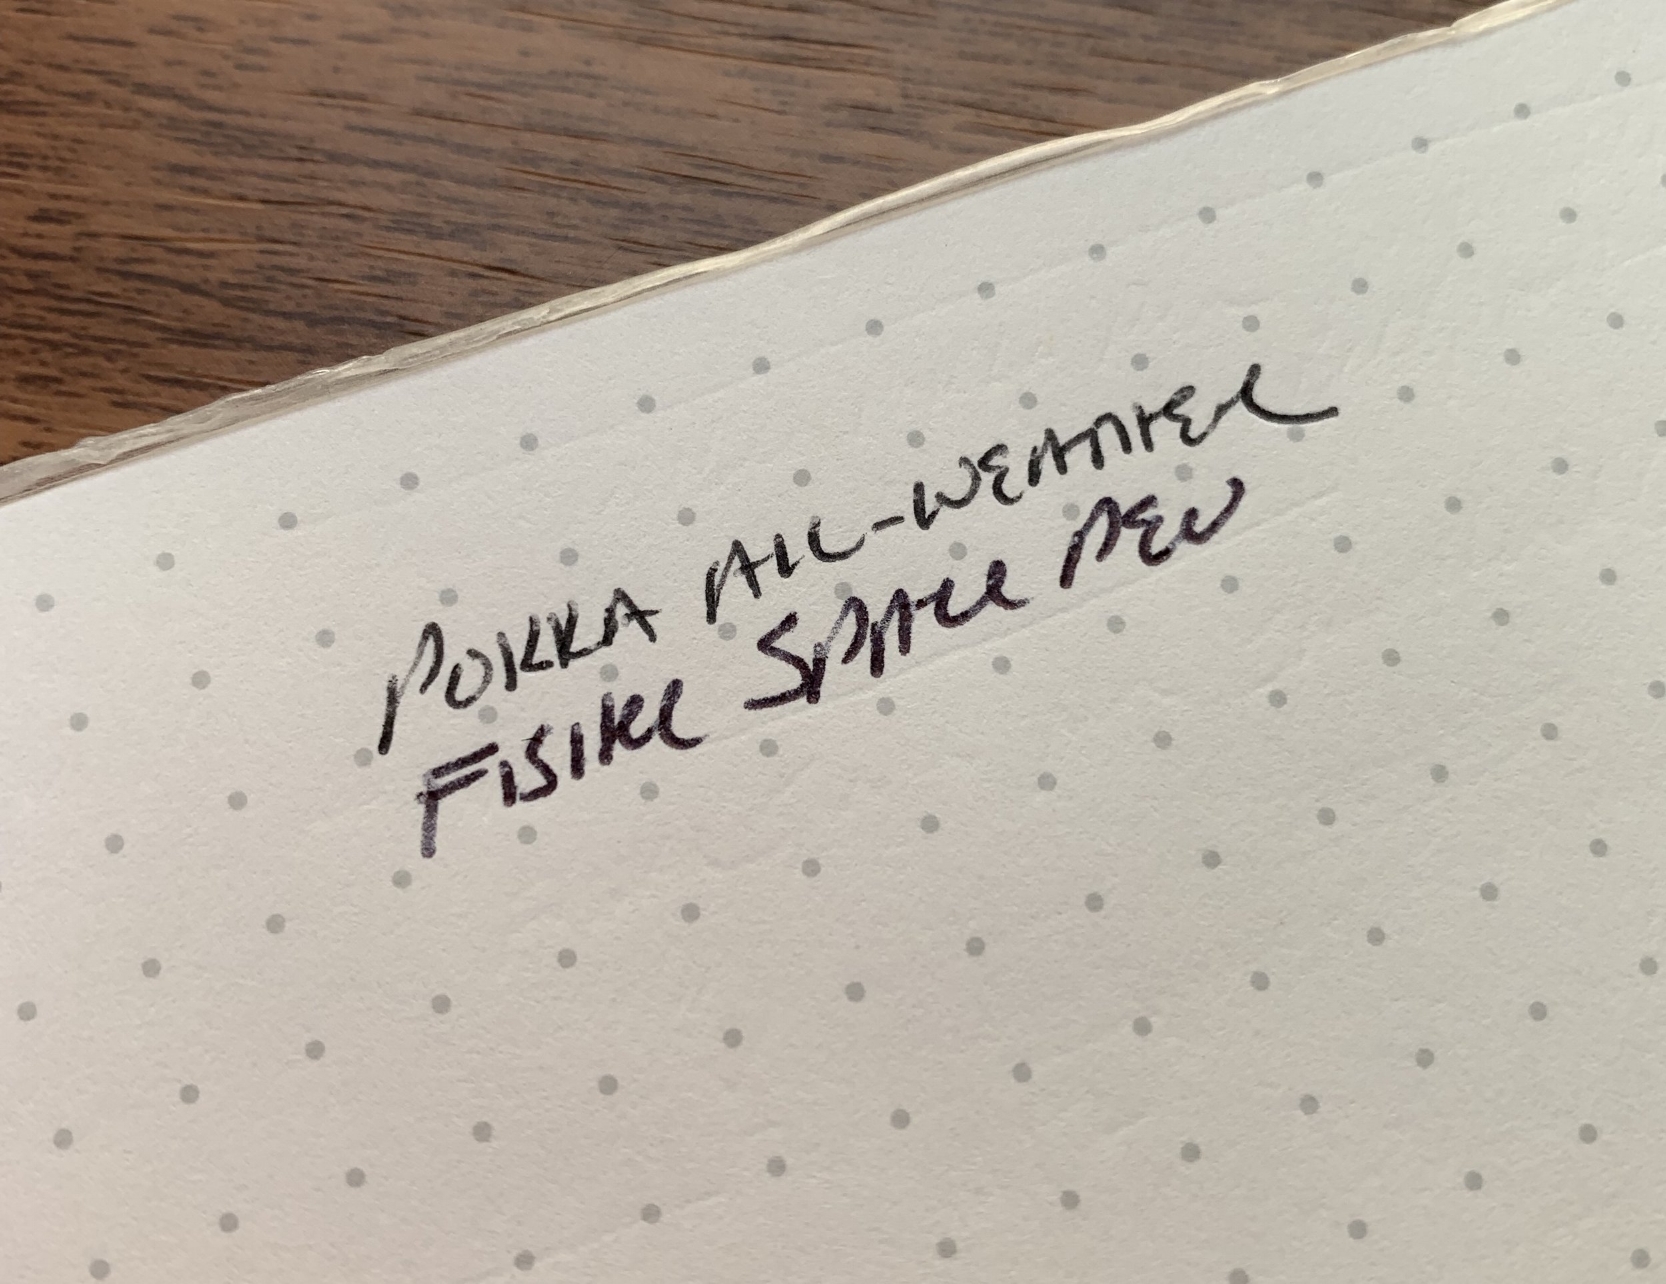 POKKA ALL-WEATHER
FISHER SPACE PEN